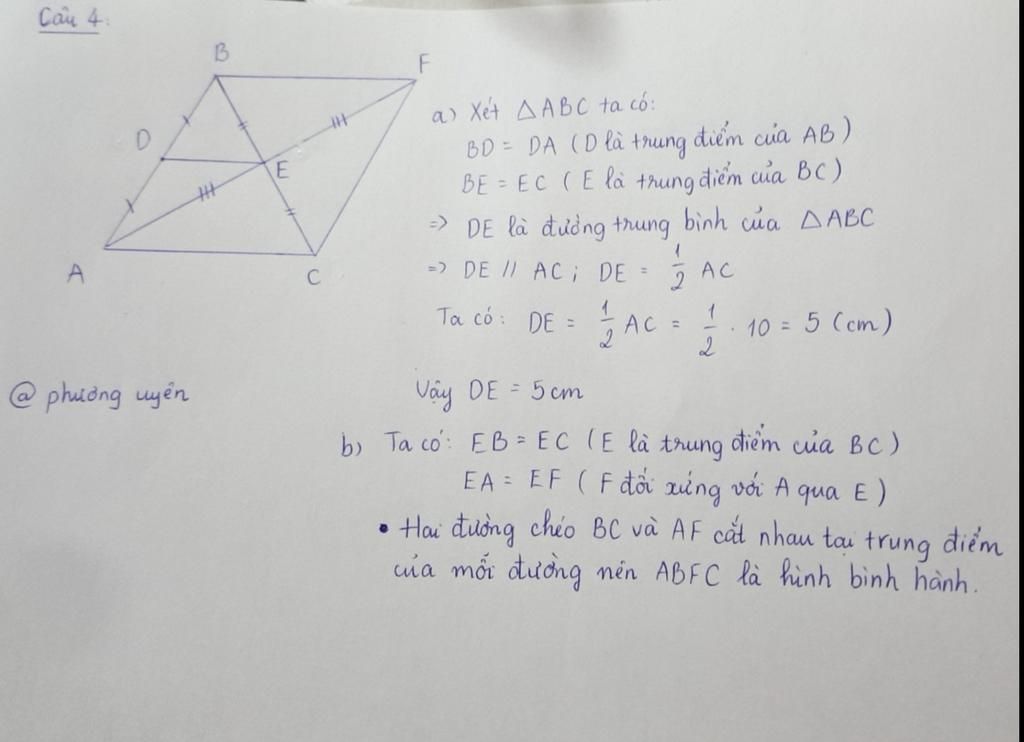 Câu 4:
B
F
D
E
A
C
a) Xét △ABC ta có:
BD = DA (D là trung điểm của AB)
BE = EC (E là trung điểm của BC)
=> DE là đường trung bình của △ABC
=> DE // AC ; DE = 1/2 AC
Ta có: DE = 1/2 AC = 1/2 . 10 = 5 (cm)
Vậy DE = 5cm
@ phương uyên
b) Ta có: EB = EC (E là trung điểm của BC)
EA = EF (F đối xứng với A qua E)
• Hai đường chéo BC và AF cắt nhau tại trung điểm
của mỗi đường nên ABFC là hình bình hành.